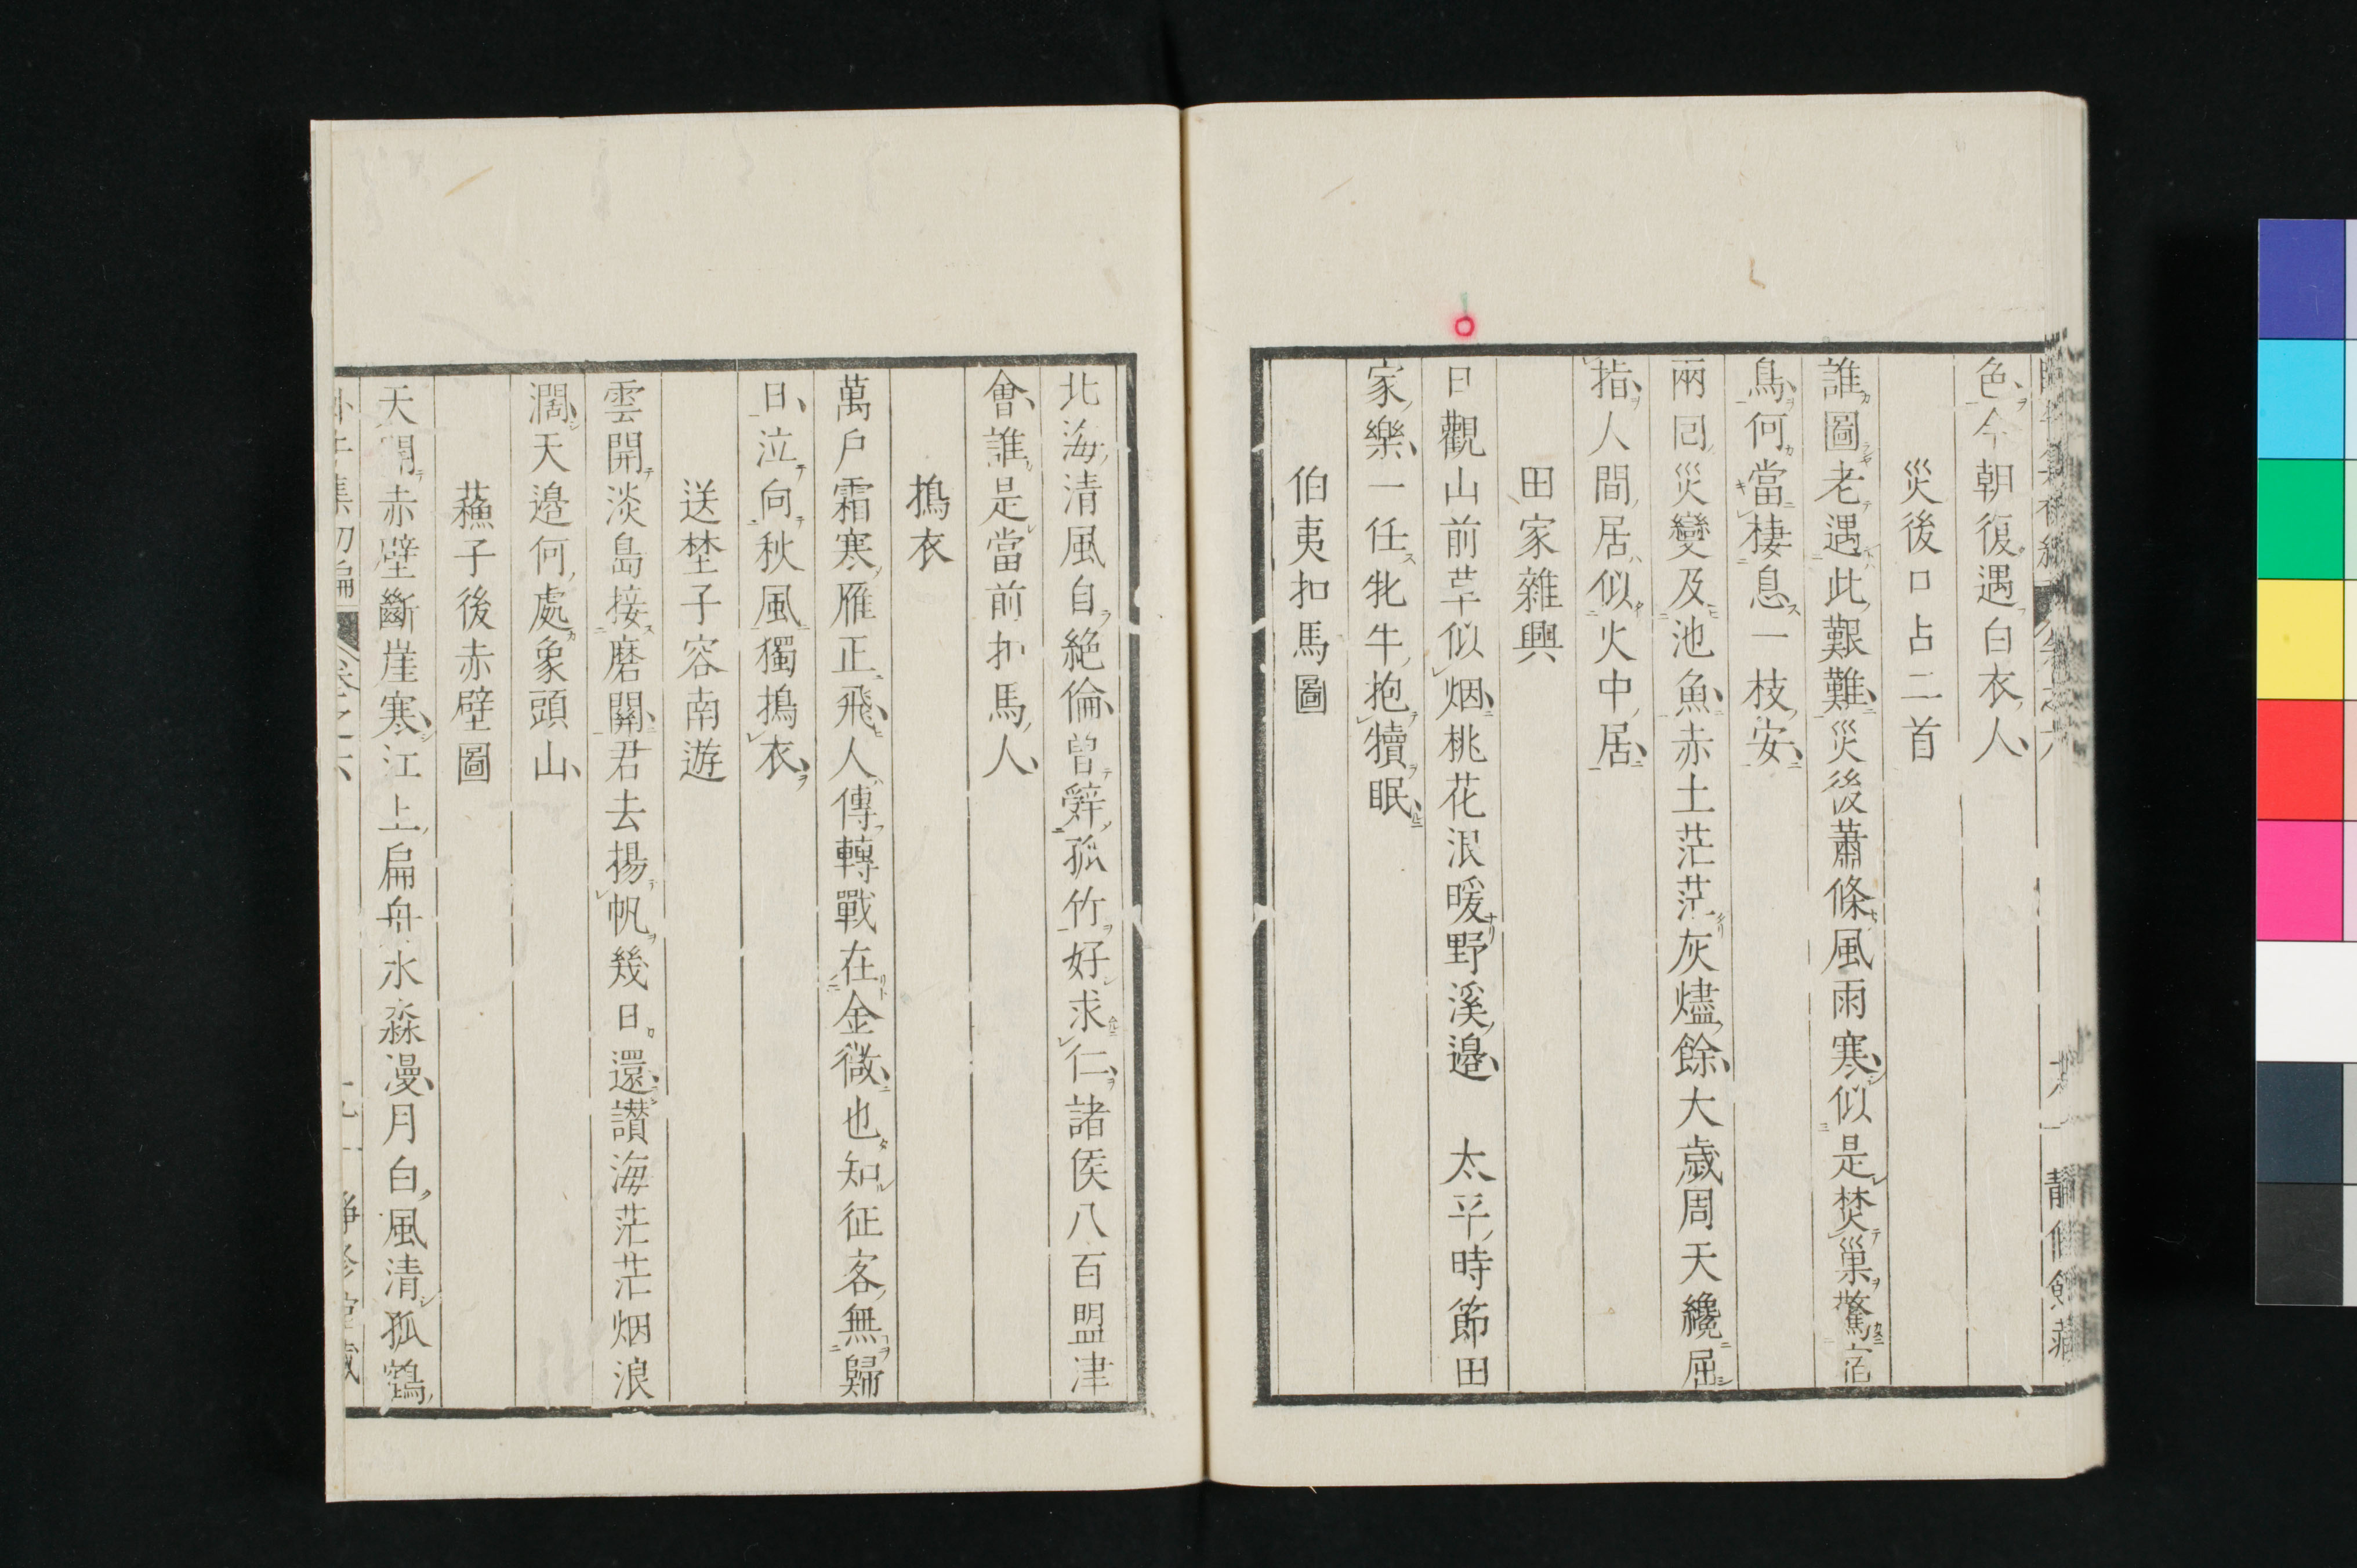 色今朝復遇白衣人
災後口占二首
誰圖老遇此艱難災後蕭條風雨寒似是焚巢驚宿
鳥何當棲息一枝安
兩回災變及池魚赤土茫茫灰燼餘大歲周天纔屈
指人間居似火中居
田家雜興
日觀山前草似烟桃花浪暖野溪邉太平時節田
家樂一任牝牛抱犢眠
伯夷扣馬圖
北海清風自絶倫曽辤孤竹好求仁諸侯八百盟津
會誰是當前扣馬人
搗衣
萬戸霜寒雁正飛人傳轉戰在金微也知征客無歸
日泣向秋風獨搗衣
送埜子容南遊
雲開淡島接磨關君去揚帆幾日還讃海茫茫烟浪
濶天邉何處象頭山
蘓子後赤壁圖
天開赤壁斷崖寒江上扁舟水淼漫月白風清孤鶴